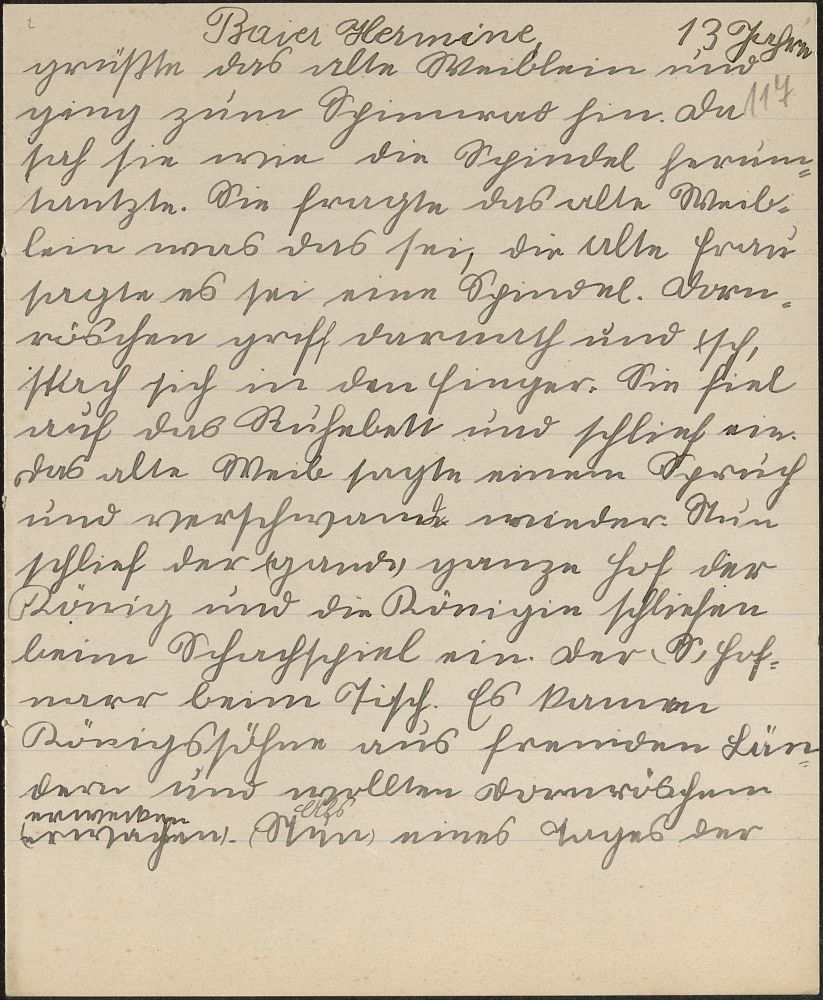 2
Baier Hermine, 13 Jahre
grüßte das alte Weiblein und
117
ging zum Spinnrad hin. Da
sah sie wie die Spindel herum=
tantzte. Sie fragte das alte Weib=
lein was das sei, die alte Frau
sagte es sei eine Spindel. Dorn=
röschen griff darnach und (sch,
stach sich in den Finger. Sie fiel
auf das Ruhebett und schlief ein.
Das alte Weib sagte einem Spruch
und verschwand wieder. Nun
schlief der (gands) ganze Hof der
König und die Königin schliefen
beim Schachspiel ein. Der (S) Hof=
narr beim Tisch. Es kamen
Königssöhne aus fremden Län=
dern und wollten Dornröschem
erwecken
(erwachen). (Nun) als eines Tages der